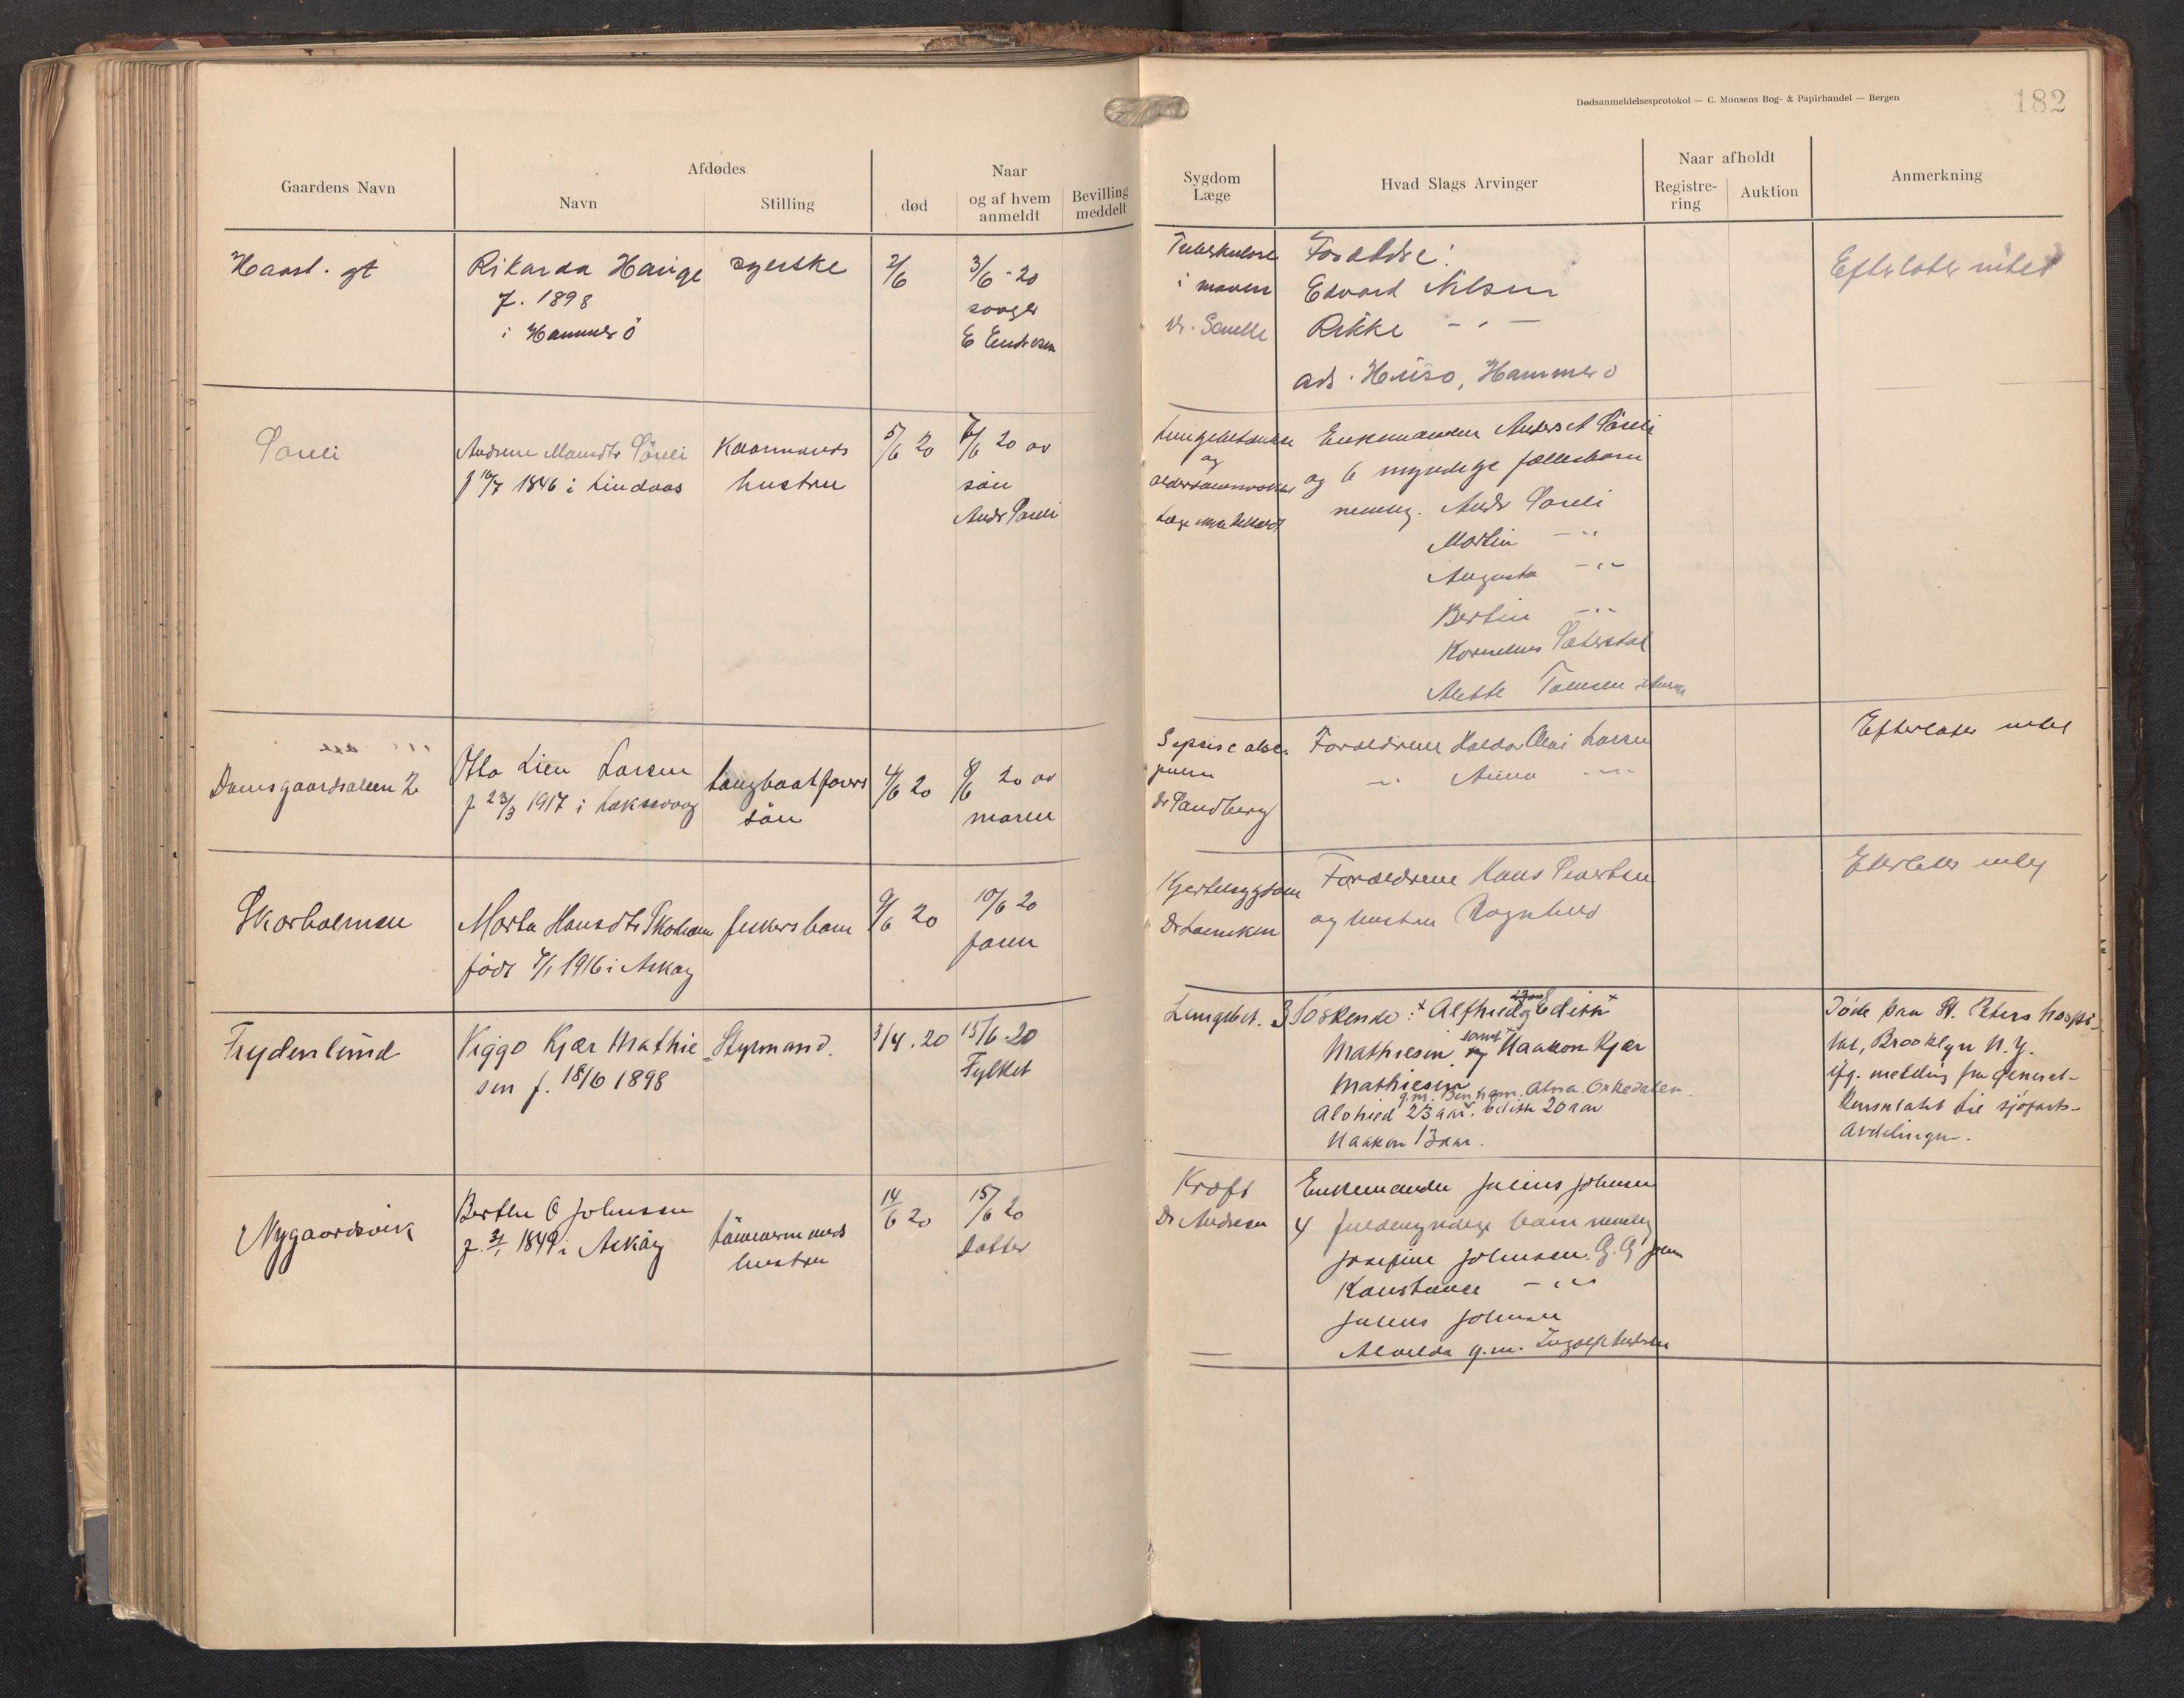 Dødsanmeldelsesprotokol — C. Monsens Bog- & Papirhandel — Bergen
182
Gaardens Navn
Afdødes
Navn
Stilling
død
Naar
og af hvem
anmeldt
Bevilling
meddelt
Sygdom
Læge
Hvad Slags Arvinger
Naar afholdt
Registre-
ring
Auktion
Anmerkning
Haast. gt
Rikarda Hauge
f. 1898
i Hammerö
syerske
2/6
3/6 - 20
svoger
E Endresen
Tuberkulose
i maven
Dr.
Forældre:
Edvard Nilsen
Rikke - " -
Hammerö
Efterlater intet
Søreli
Andrine Monsdtr Søreli
f 10/7 1846 i Lindaas
Kaarmands
hustru
5/6 20
7/6 20 av
søn
Andr Søreli
Lungebetændelse
og
Enkemanden Anders A Søreli
og 6 myndige fællesbarn
nemlig. Andr Søreli
Martin - " -
Augusta - " -
Bertin - " -
Kornelius Sæterstøl
Alette
Damsgaardsaleen 2
Otto Lien Larsen
f 23/3 1917 i Laksevaag
søn
4/6 20
8/6 20 av
moren
Sepsis
Dr Sandberg
Forældrene Haldor Larsen
- " - Anna - " -
Efterlater intet
Skarholmen
Marta Hansdtr Skarholmen
født 4/1 1916 i Askøy
fiskers barn
9/6 20
10/6 20
faren
Kjertelsygdom
Dr
Forældrene Hans Sivertsen
og hustru Ragnhild
Efterlater intet
Frydenlund
Viggo Kjær Mathie-
sen f. 18/6 1898
Styrmand.
3/4 . 20
15/6 - 20
Fylket
Lungebet.
3 Søskende: Alfhild og Edith
Mathiesen samt Haakon Kjær
Mathiesen
Alvhild 23 aar. Edith 20 aar
Haakon 13 aar.
Døde paa St. Peters hospi-
tal, Brooklyn N.Y.
ifg. melding fra general-
konsulatet til sjøfarts-
avdelingen.
Nygaardsvik
Berthe O Johnsen
f. 3/1 1849 i Askøy
tømmermands
hustru
14/6 20
15/6 20
Datter
Kræft
Dr Andresen
Enkemanden Julius Johnsen
4 fuldmyndige barn nemlig
Josefine Johnsen
Konstance - " -
Julius Johnsen
Alvilda g.m. Ingolf